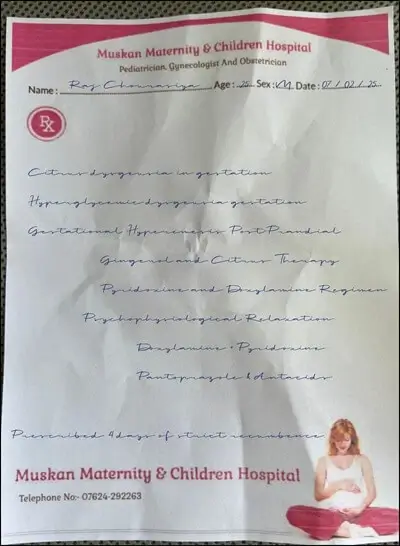 Muskan Maternity & Children Hospital
Pediatrician, Gynecologist And Obstetrician
Name : Raj Chourasiya Age : 25 Sex : M Date : 07 / 02 / 25
Rx
Citrus dysgeusia in gestation
Hyperglycemic dysgeusia gestation
Gestational Hyperemesis Post Prandial
Gingerol and Citrus Therapy
Pyridoxine and Doxylamine Regimen
Psychophysiological Relaxation
Doxylamine + Pyridoxine
Pantoprazole & Antacids
Prescribed 4 days of strict recumbence
Muskan Maternity & Children Hospital
Telephone No:- 07624-292263